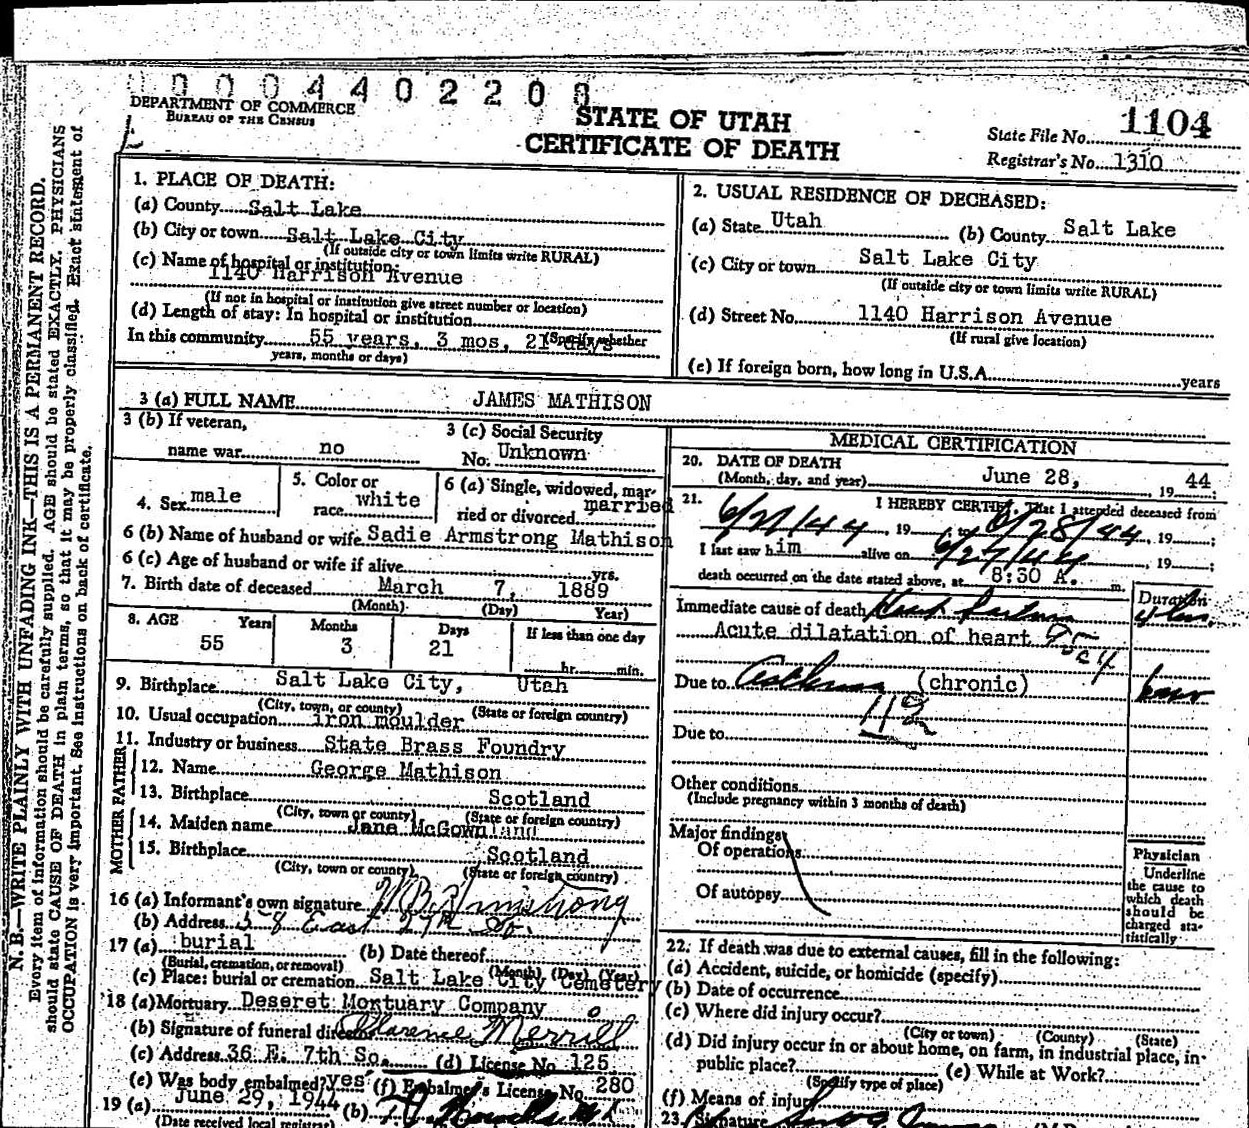 0 0 0 0 4 4 0 2 2 0 8
DEPARTMENT OF COMMERCE
BUREAU OF THE CENSUS
STATE OF UTAH
CERTIFICATE OF DEATH
State File No. 1104
Registrar's No. 1310
N. B.—WRITE PLAINLY WITH UNFADING INK—THIS IS A PERMANENT RECORD.
Every item of information should be carefully supplied. AGE should be stated EXACTLY. PHYSICIANS
should state CAUSE OF DEATH in plain terms, so that it may be properly classified. Exact statement of
OCCUPATION is very important. See instructions on back of certificate.
1. PLACE OF DEATH:
(a) County Salt Lake
(b) City or town Salt Lake City
(If outside city or town limits write RURAL)
(c) Name of hospital or institution:
1140 Harrison Avenue
(If not in hospital or institution give street number or location)
(d) Length of stay: In hospital or institution
In this community 55 years, 3 mos, 21 days (Specify whether
years, months or days)
2. USUAL RESIDENCE OF DECEASED:
(a) State Utah (b) County Salt Lake
(c) City or town Salt Lake City
(If outside city or town limits write RURAL)
(d) Street No. 1140 Harrison Avenue
(If rural give location)
(e) If foreign born, how long in U.S.A. years
3 (a) FULL NAME JAMES MATHISON
3 (b) If veteran,
name war no
3 (c) Social Security
No. Unknown
4. Sex male
5. Color or
race white
6 (a) Single, widowed, mar-
ried or divorced married
6 (b) Name of husband or wife Sadie Armstrong Mathison
6 (c) Age of husband or wife if alive yrs.
7. Birth date of deceased March 7, 1889
(Month) (Day) Year)
8. AGE Years Months Days If less than one day
55 3 21 hr. min.
9. Birthplace Salt Lake City, Utah
(City, town, or county) (State or foreign country)
10. Usual occupation iron moulder
11. Industry or business State Brass Foundry
FATHER
12. Name George Mathison
13. Birthplace Scotland
(City, town or county) (State or foreign country)
MOTHER
14. Maiden name Jane McGown
15. Birthplace Scotland
(City, town or county) (State or foreign country)
16 (a) Informant's own signature Armstrong
(b) Address East So.
17 (a) burial (b) Date thereof
(Burial, cremation, or removal) (Month) (Day) (Year)
(c) Place: burial or cremation Salt Lake City Cemetery
18 (a) Mortuary Deseret Mortuary Company
(b) Signature of funeral director Clarence Merrill
(c) Address 36 E. 7th So. (d) License No 125
(e) Was body embalmed? yes (f) Embalmer's License No. 280
19 (a) June 29, 1944 (b)
(Date received local registrar)
MEDICAL CERTIFICATION
20. DATE OF DEATH
(Month, day, and year) June 28, 19 44;
21. I HEREBY CERTIFY, That I attended deceased from
6/21/44, 19 , to 6/28/44, 19 ;
I last saw him alive on 6/27/44, 19 ;
death occurred on the date stated above, at 8:30 A. m.
Duration
Immediate cause of death Heart failure
Acute dilatation of heart
Due to Asthma (chronic)
112
Due to
Other conditions
(Include pregnancy within 3 months of death)
Major findings:
Of operations
Of autopsy
Physician
Underline
the cause to
which death
should be
charged sta-
tistically
22. If death was due to external causes, fill in the following:
(a) Accident, suicide, or homicide (specify)
(b) Date of occurrence
(c) Where did injury occur?
(City or town) (County) (State)
(d) Did injury occur in or about home, on farm, in industrial place, in
public place? (e) While at Work?
(Specify type of place)
(f) Means of injury
23. Signature